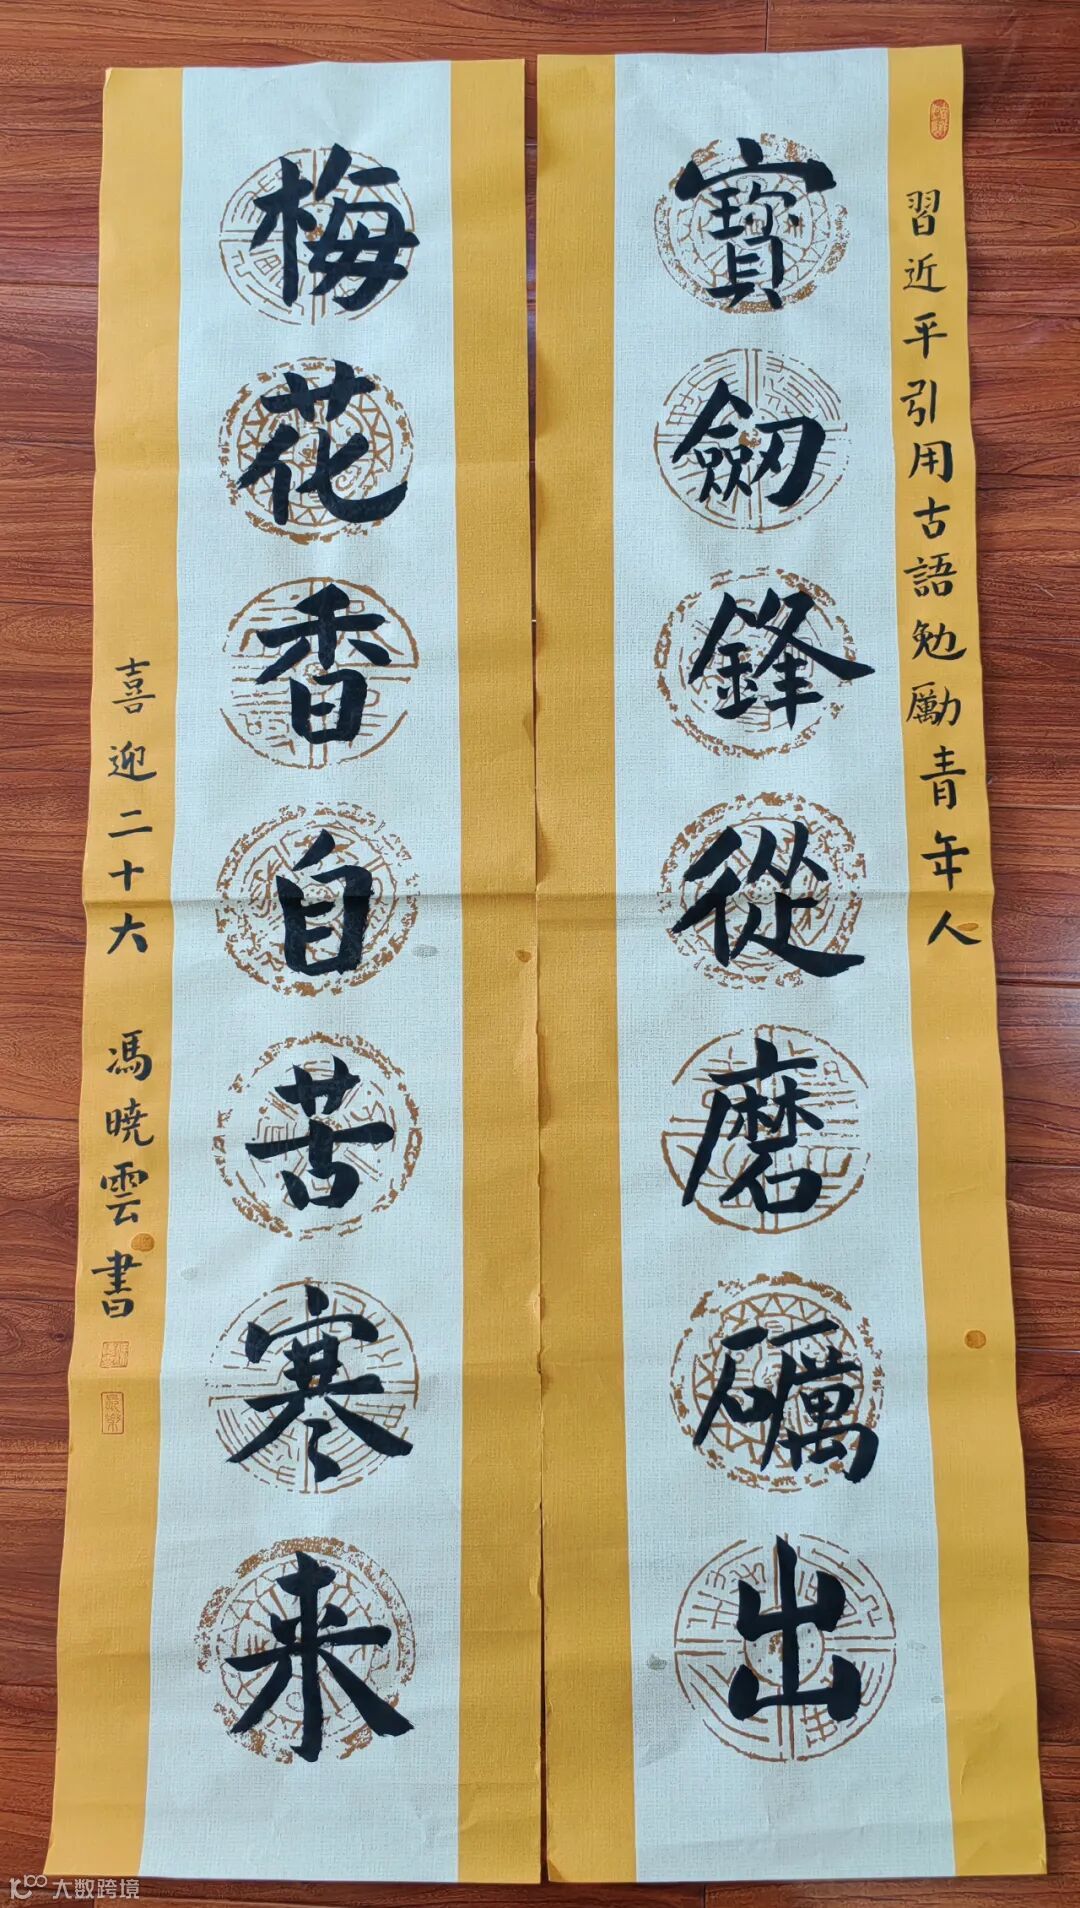 習近平引用古語勉勵青年人
寶劒鋒從磨礪出
梅花香自苦寒来
喜迎二十大 馮曉雲書
大数跨境